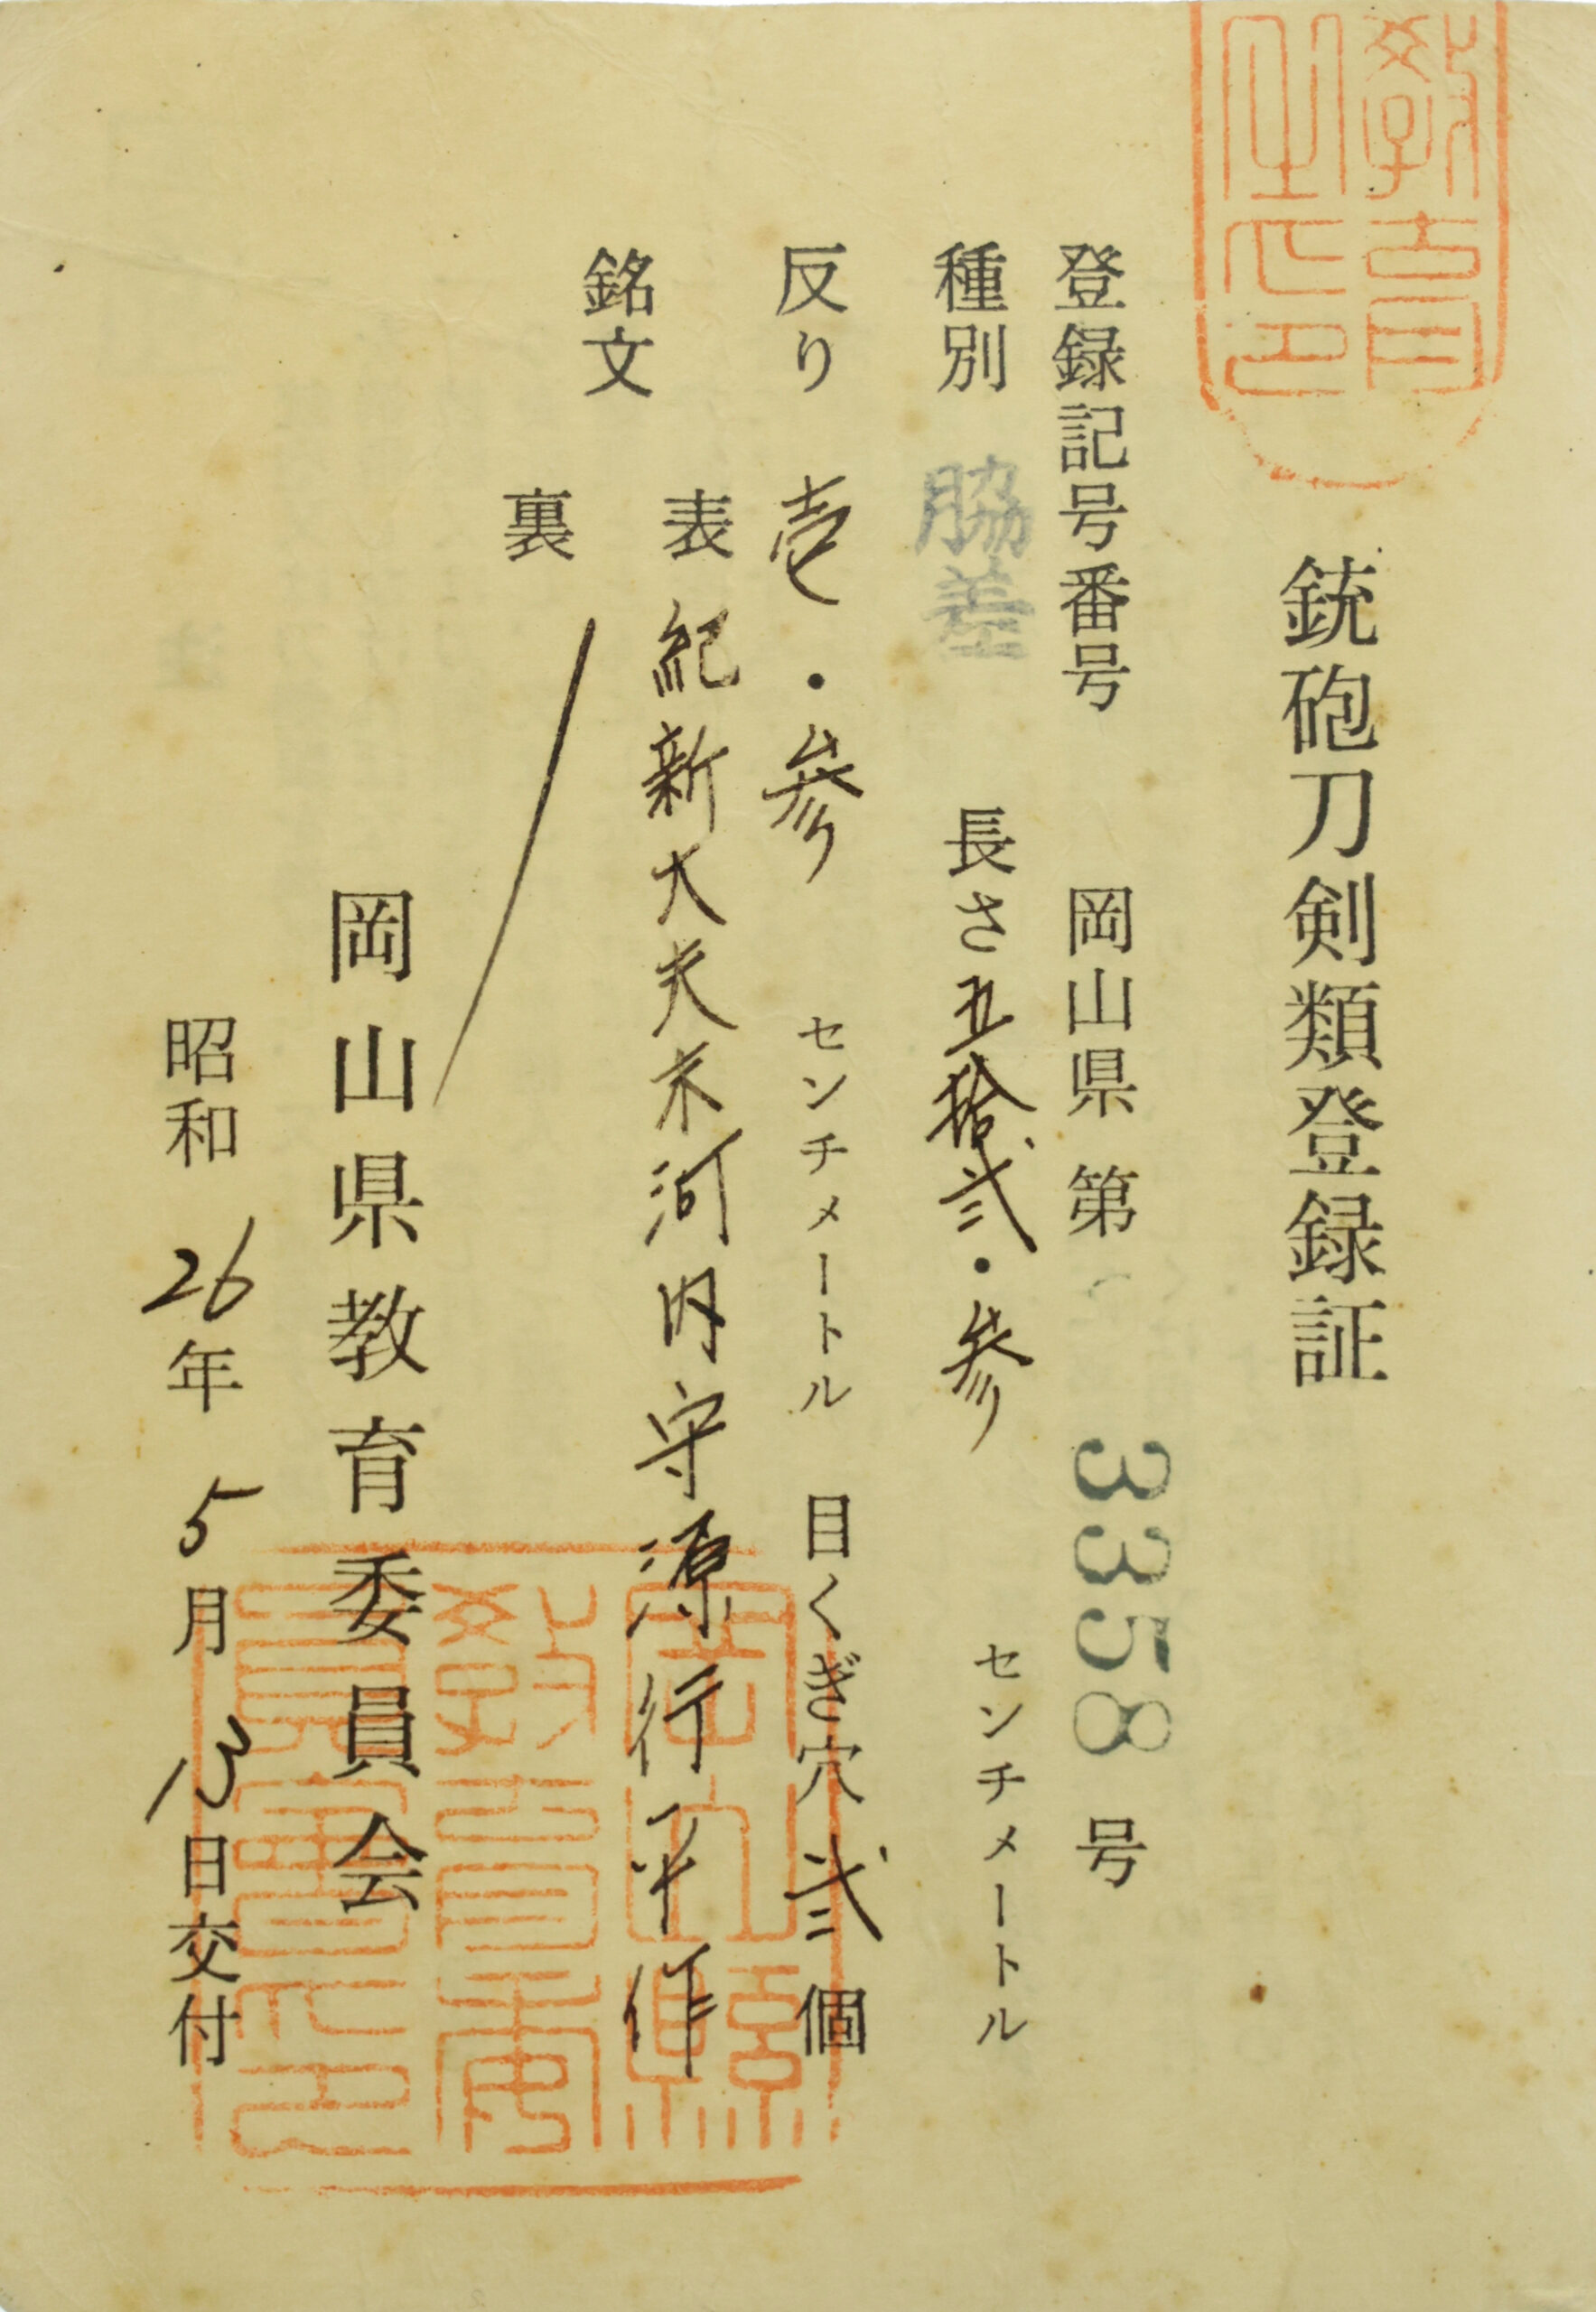 銃砲刀剣類登録証
登録記号番号 岡山県 第 3358 号
種別 脇差 長さ 五拾弐・参 センチメートル
反り 壱・参 センチメートル 目くぎ穴 弐 個
銘文
表 紀新大夫末河内守源行平作
裏
岡山県教育委員会
昭和 26 年 5 月 13 日交付
教育
岡山縣
教育委
員會